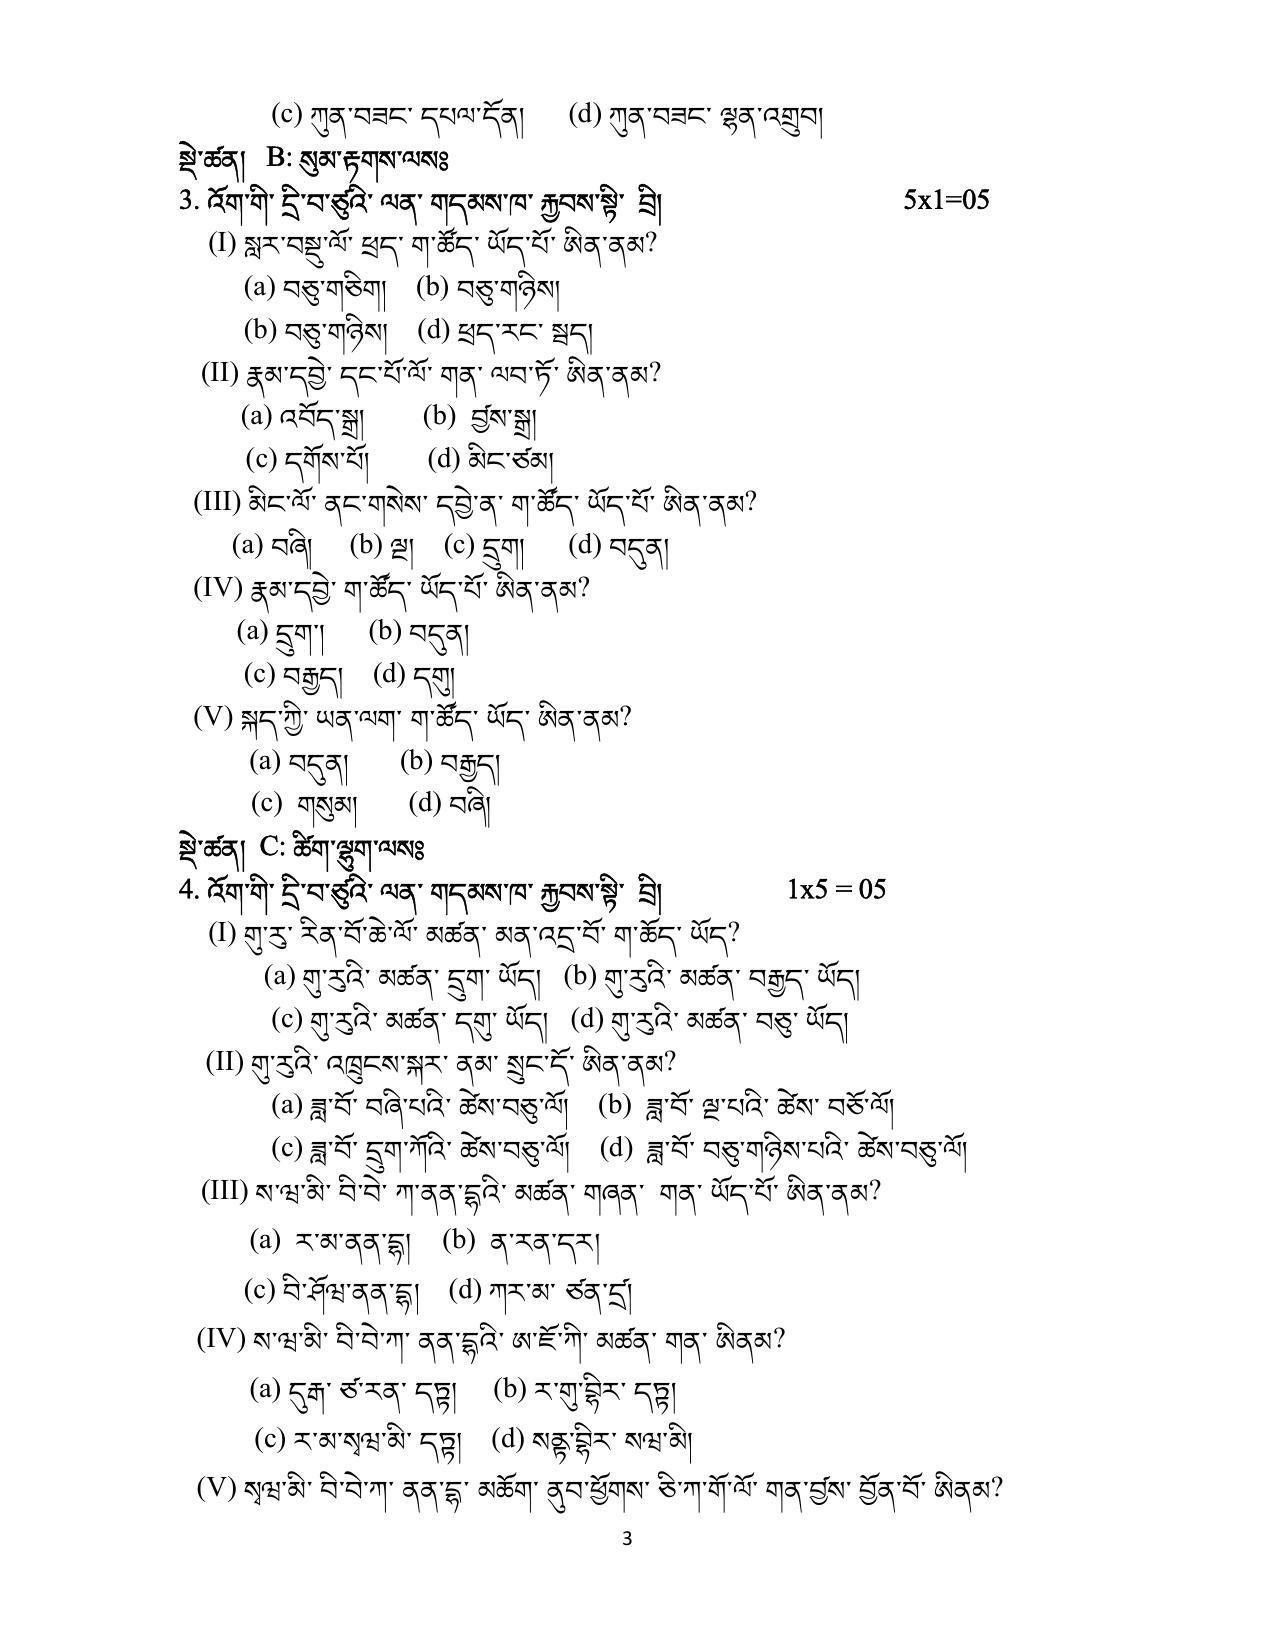 (c) ཀུན་བཟང་ དཔལ་དོན། (d) ཀུན་བཟང་ ལྷན་འགྲུབ།
སྡེ་ཚན། B: སུམ་རྟགས་ལས༔
3. འོག་གི་ དྲི་བ་ཙུའི་ ལན་ གདམས་ཁ་ རྐྱབས་སྟི་ བྲི། 5x1=05
(I) སླར་བསྡུ་ལོ་ ཕྲད་ ག་ཚོད་ ཡོད་པོ་ ཨིན་ནམ?
(a) བཅུ་གཅིག། (b) བཅུ་གཉིས།
(b) བཅུ་གཉིས། (d) ཕྲད་རང་ སྦད།
(II) རྣམ་དབྱེ་ དང་པོ་ལོ་ གན་ ལབ་ཏོ་ ཨིན་ནམ?
(a) འབོད་སྒྲ། (b) བྱས་སྒྲ།
(c) དགོས་པོ། (d) མིང་ཙམ།
(III) མིང་ལོ་ ནང་གསེས་ དབྱེ་ན་ ག་ཚོད་ ཡོད་པོ་ ཨིན་ནམ?
(a) བཞི། (b) ལྔ། (c) དྲུག། (d) བདུན།
(IV) རྣམ་དབྱེ་ ག་ཚོད་ ཡོད་པོ་ ཨིན་ནམ?
(a) དྲུག་། (b) བདུན།
(c) བརྒྱད། (d) དགུ།
(V) སྐད་ཀྱི་ ཡན་ལག་ ག་ཚོད་ ཡོད་ ཨིན་ནམ?
(a) བདུན། (b) བརྒྱད།
(c) གསུམ། (d) བཞི།
སྡེ་ཚན། C: ཚིག་ལྷུག་ལས༔
4. འོག་གི་ དྲི་བ་ཙུའི་ ལན་ གདམས་ཁ་ རྐྱབས་སྟི་ བྲི། 1x5 = 05
(I) གུ་རུ་ རིན་པོ་ཆེ་ལོ་ མཚན་ མན་འདྲ་བོ་ ག་ཚོད་ ཡོད?
(a) གུ་རུའི་ མཚན་ དྲུག་ ཡོད། (b) གུ་རུའི་ མཚན་ བརྒྱད་ ཡོད།
(c) གུ་རུའི་ མཚན་ དགུ་ ཡོད། (d) གུ་རུའི་ མཚན་ བཅུ་ ཡོད།
(II) གུ་རུའི་ འཁྲུངས་སྐར་ ནམ་ སྲུང་དོ་ ཨིན་ནམ?
(a) ཟླ་བོ་ བཞི་པའི་ ཚེས་བཅུ་ལོ། (b) ཟླ་བོ་ ལྔ་པའི་ ཚེས་ བཅོ་ལོ།
(c) ཟླ་བོ་ དྲུག་ཀོའི་ ཚེས་བཅུ་ལོ། (d) ཟླ་བོ་ བཅུ་གཉིས་པའི་ ཚེས་བཅུ་ལོ།
(III) ས་ཝ་མི་ བི་བེ་ ཀ་ནན་དྷའི་ མཚན་ གཞན་ གན་ ཡོད་པོ་ ཨིན་ནམ?
(a) ར་མ་ནན་དྷ། (b) ན་རན་དར།
(c) བི་ཤོཝ་ནན་དྷ། (d) ཀར་མ་ ཙན་དྲ།
(IV) ས་ཝ་མི་ བི་བེ་ཀ་ ནན་དྷའི་ ཨ་ཇོ་ཀི་ མཚན་ གན་ ཨིནམ?
(a) དུརྒ་ ཙ་རན་ དཏྟ། (b) ར་གུ་བྷིར་ དཏྟ།
(c) ར་མ་སྭཝ་མི་ དཏྟ། (d) སནྟ་བྷིར་ སཝ་མི།
(V) སྭཝ་མི་ བི་བེ་ཀ་ ནན་དྷ་ མཆོག་ ནུབ་ཕྱོགས་ ཅི་ཀ་གོ་ལོ་ གན་བྱས་ བྱོན་བོ་ ཨིནམ?
3